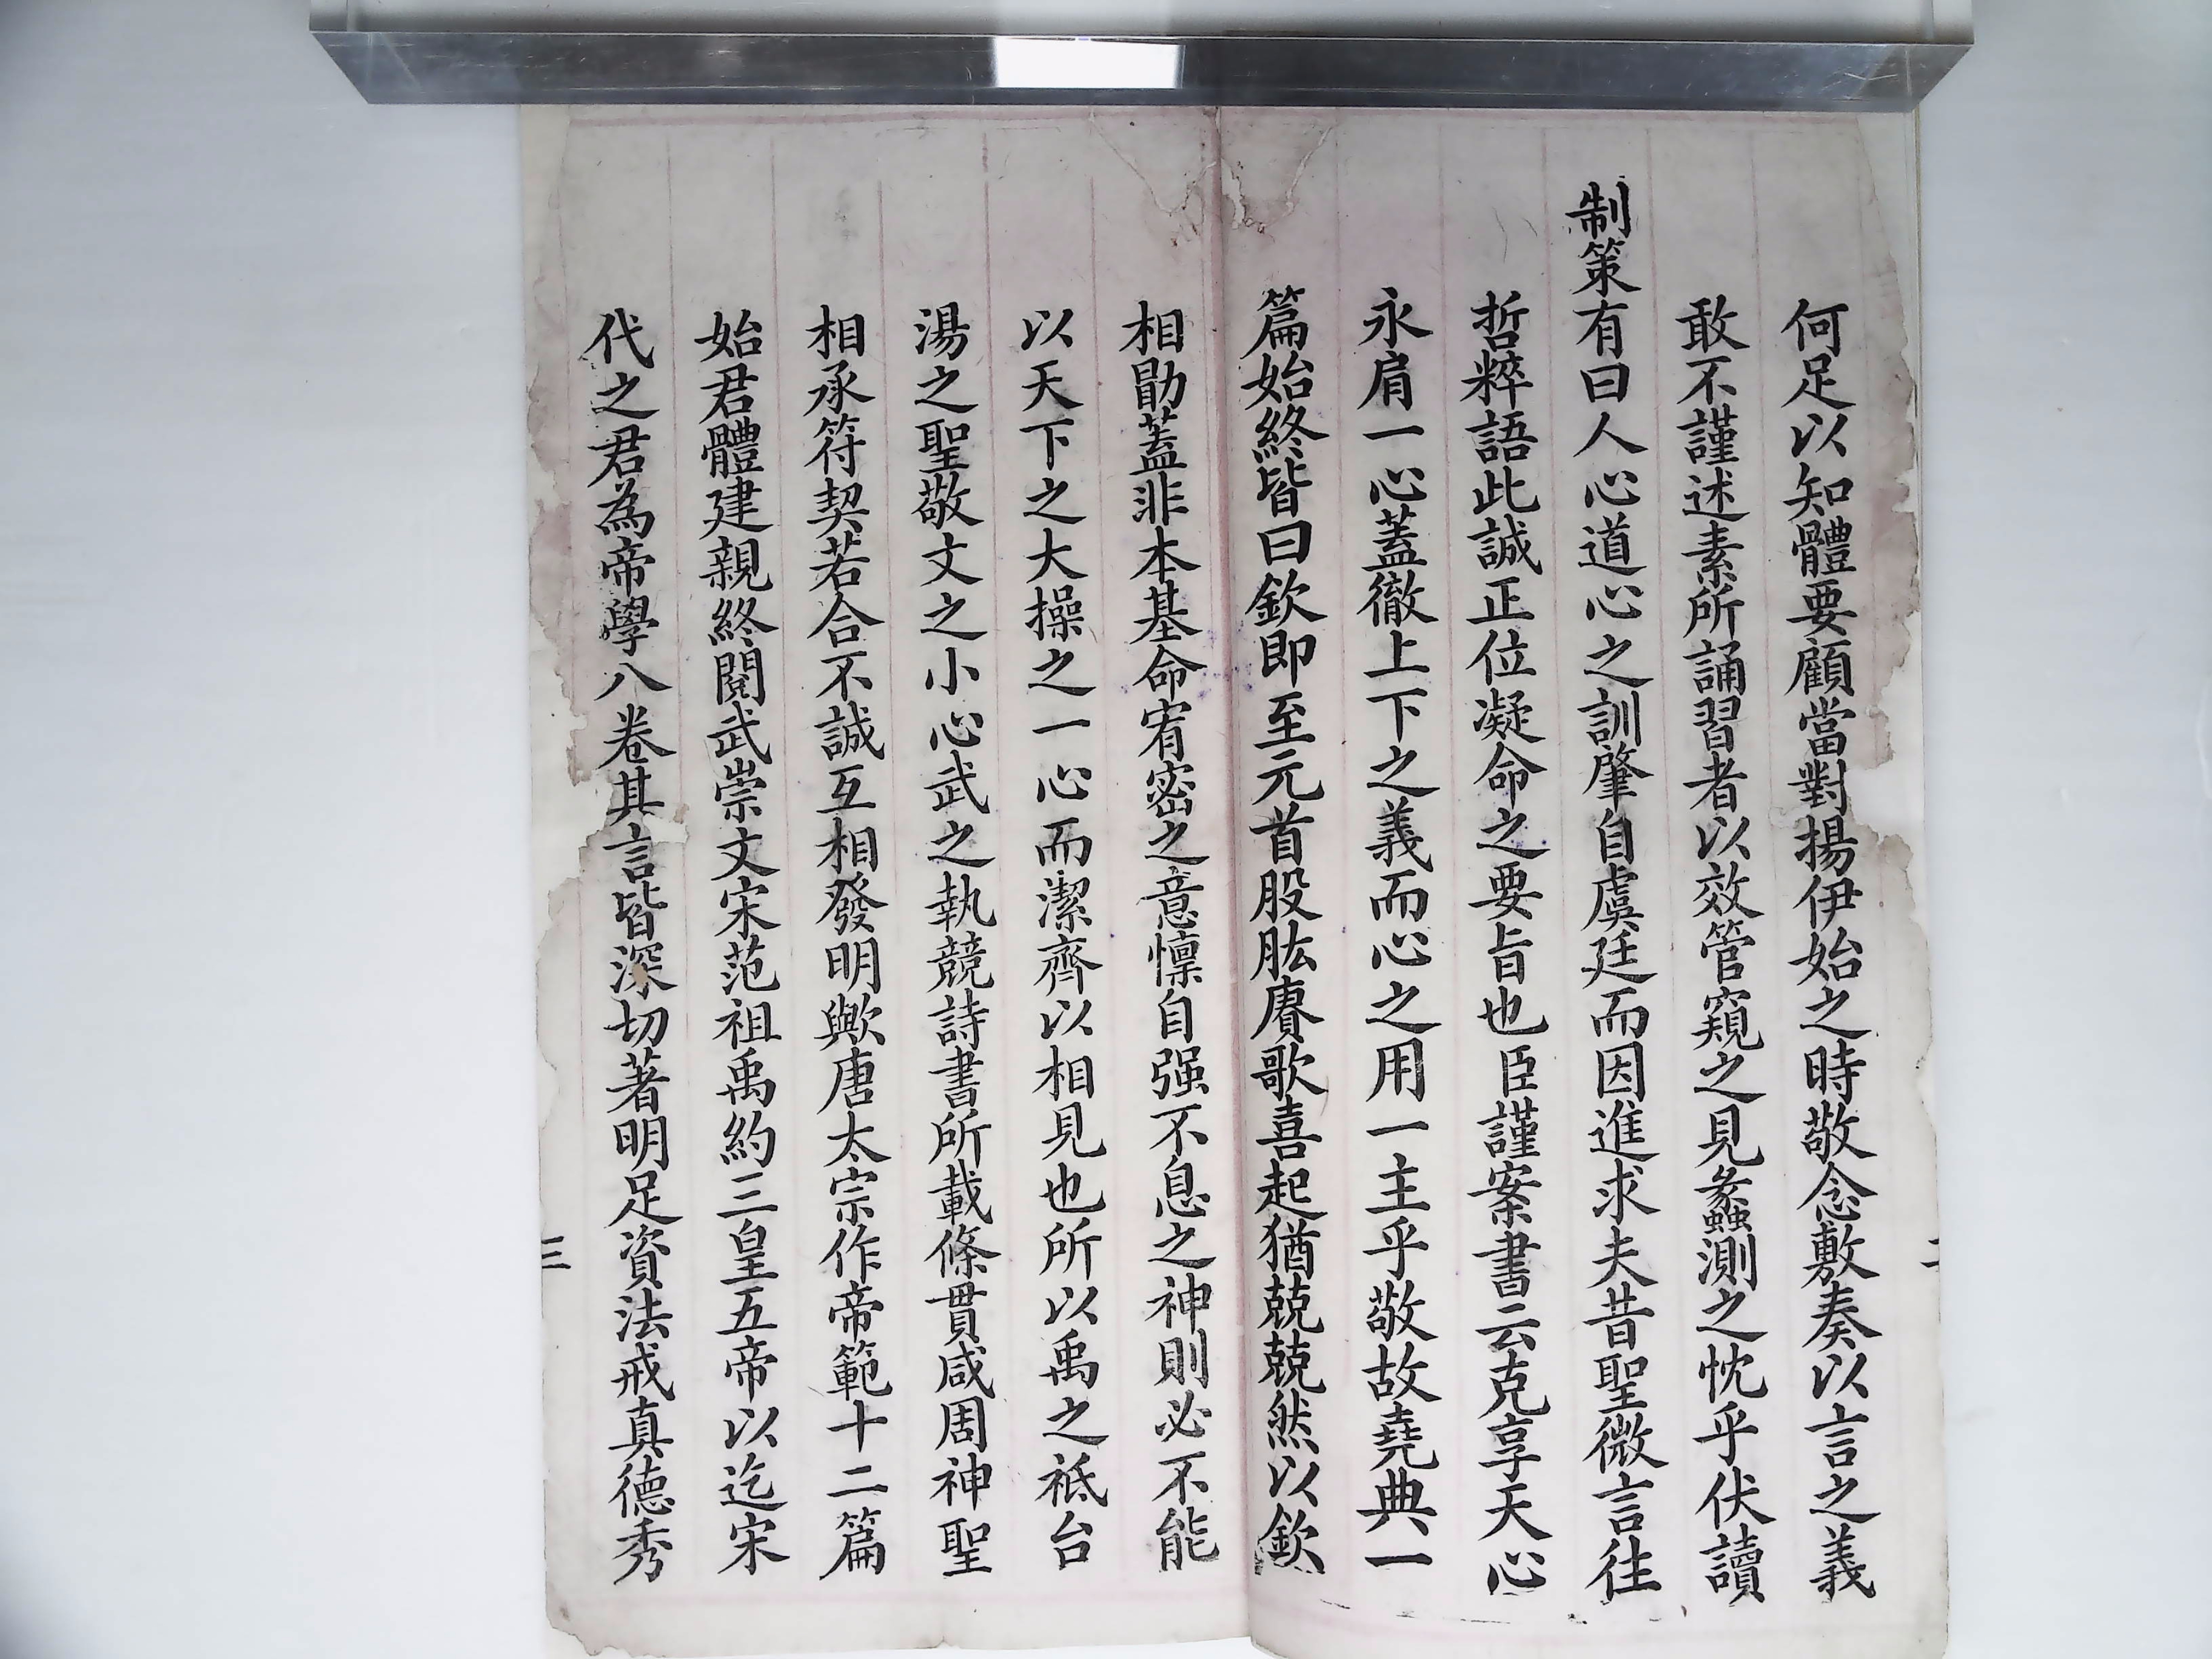 何足以知體要顧當對揚伊始之時敬念敷奏以言之義
敢不謹述素所誦習者以效管窺之見蠡測之忱乎伏讀
制策有曰人心道心之訓肇自虞廷而因進求夫昔聖微言往
哲粹語此誠正位凝命之要旨也臣謹案書云克享天心
永肩一心蓋徹上下之義而心之用一主乎敬故堯典一
篇始終皆曰欽即至元首股肱賡歌喜起猶兢兢然以欽
相勖蓋非本基命宥密之意懍自强不息之神則必不能
以天下之大操之一心而潔齊以相見也所以禹之祗台
湯之聖敬文之小心武之執競詩書所載條貫咸周神聖
相承符契若合不誠互相發明歟唐太宗作帝範十二篇
始君體建親終閱武崇文宋范祖禹約三皇五帝以迄宋
代之君為帝學八卷其言皆深切著明足資法戒真德秀
三